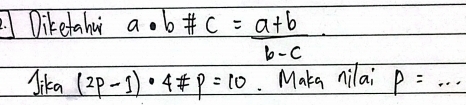 2.] Diketahui a • b # c = a+b
b-c
Jika (2p-1) • 4 # p = 10. Maka nilai p = ...